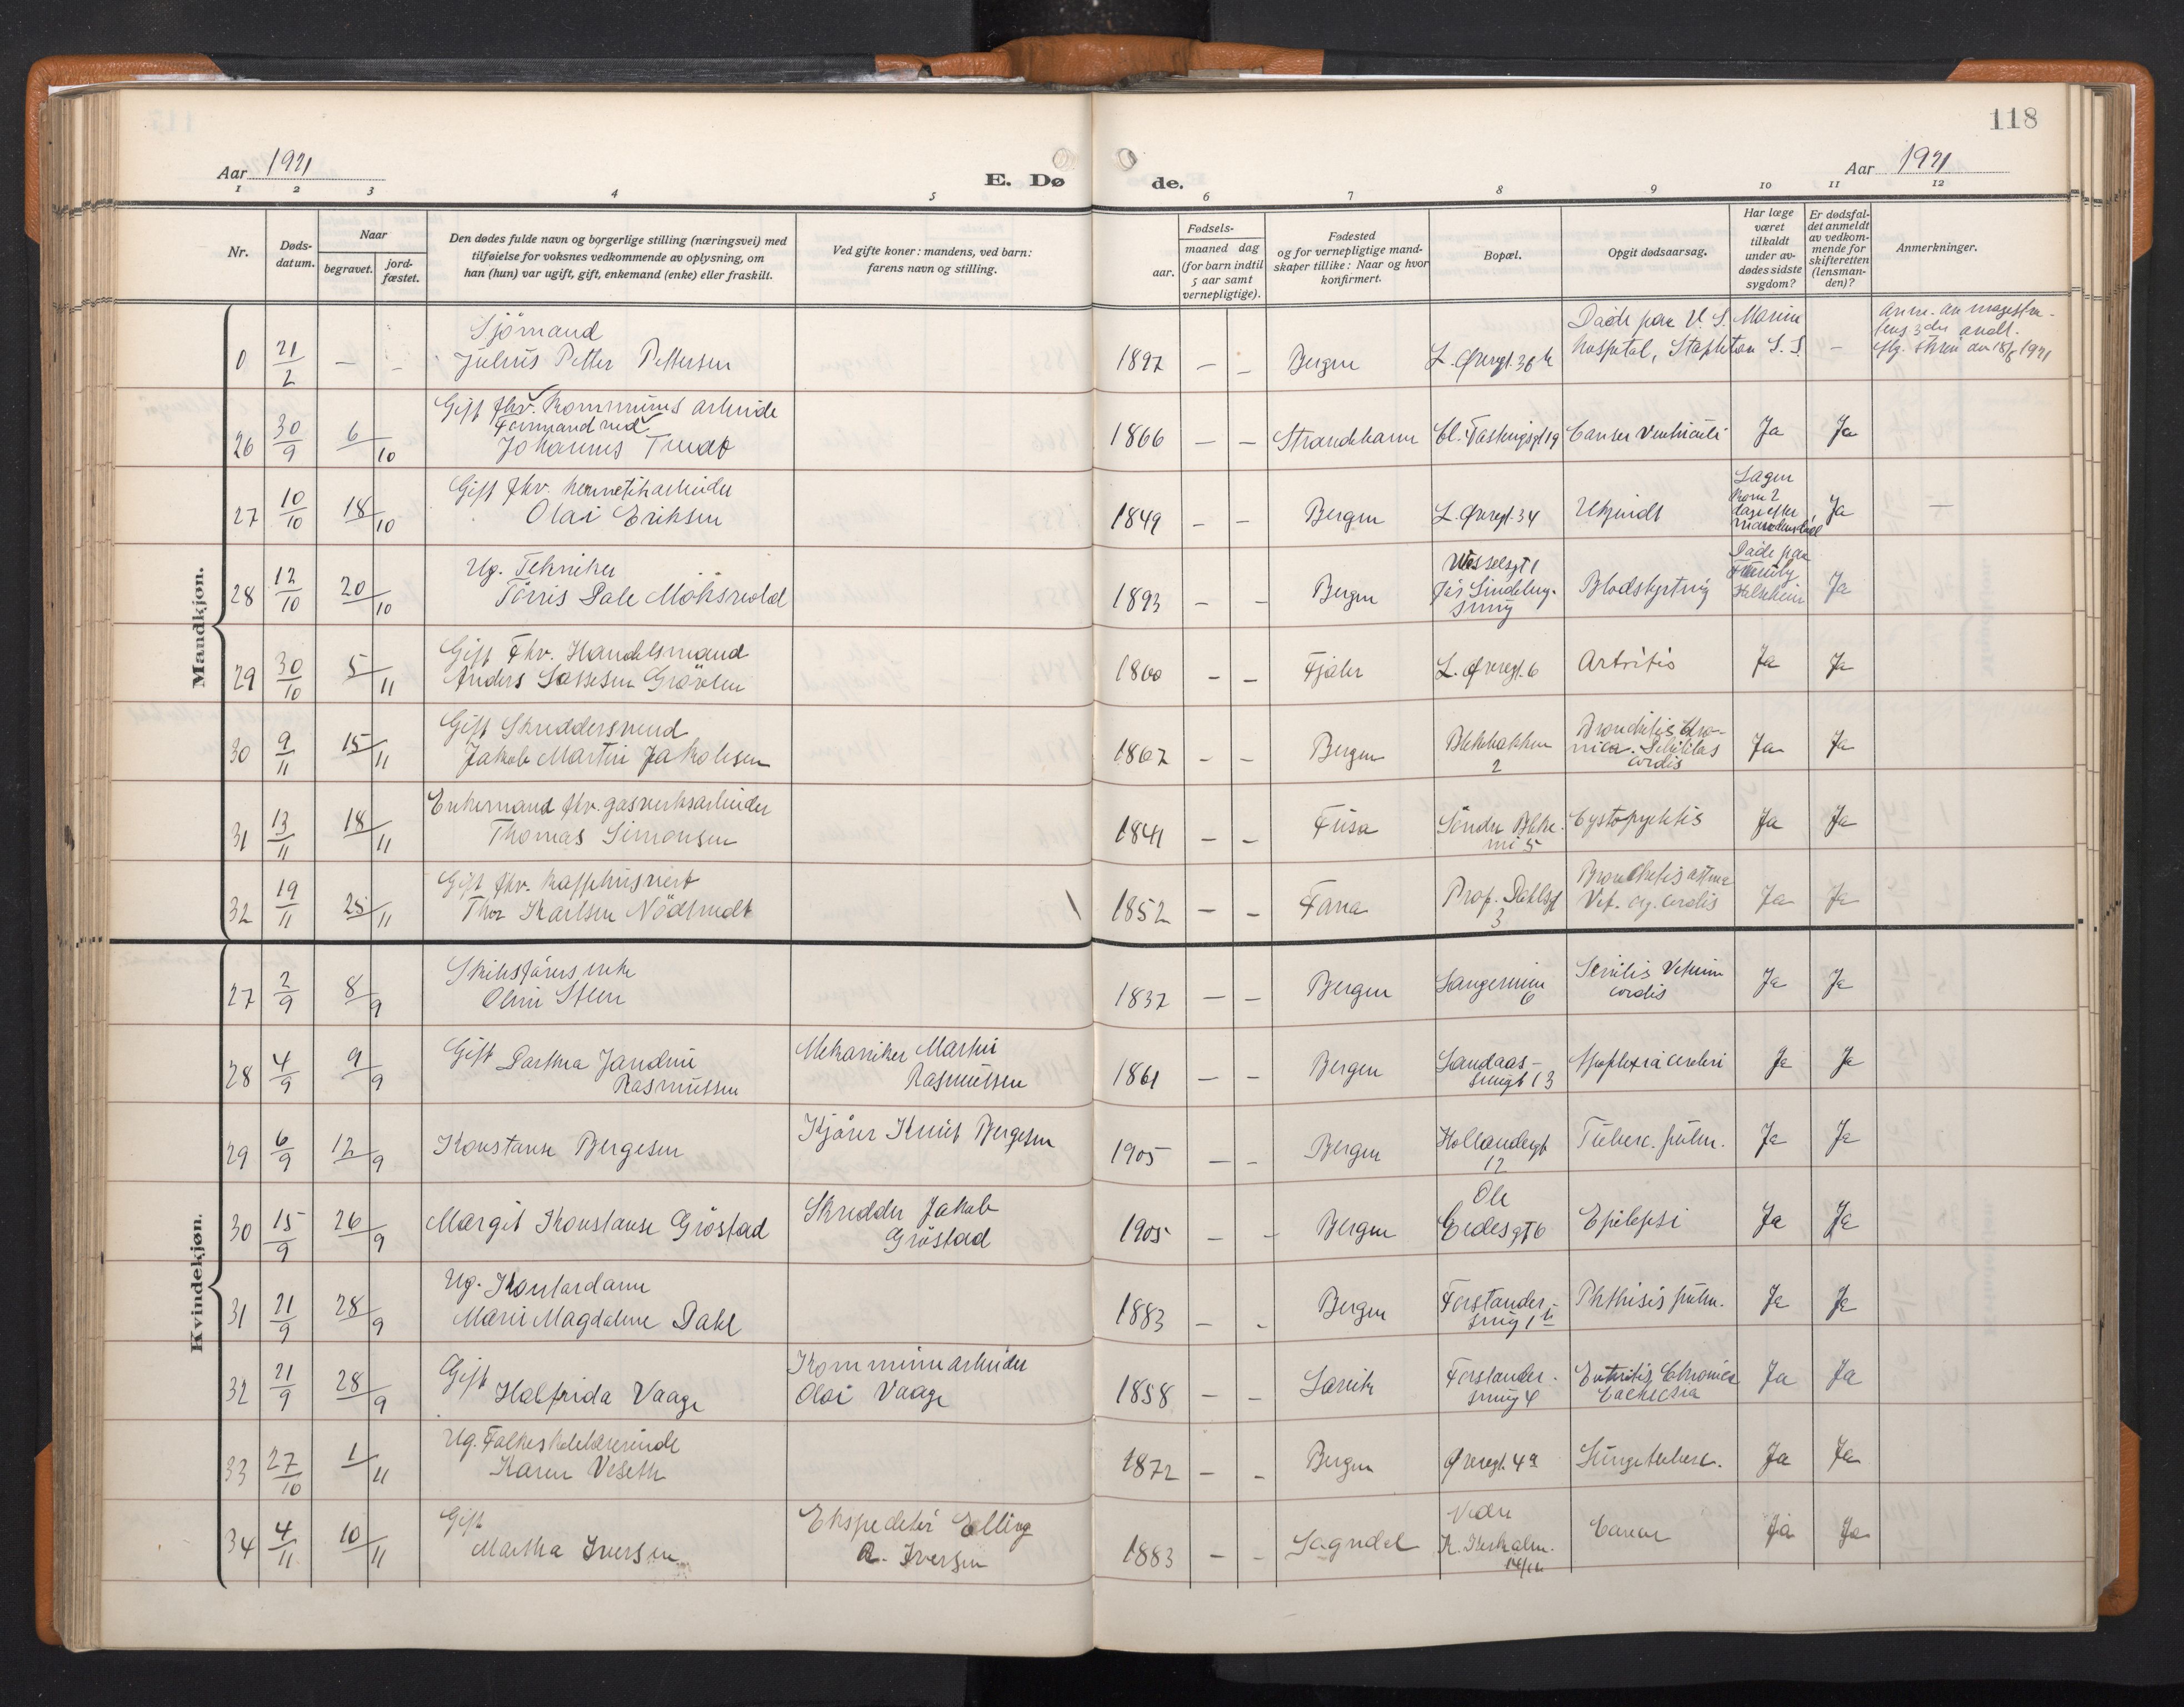 118
Aar 1921
E. Dø
de.
Aar 1921
1 2 3 4 5 6 7 8 9 10 11 12
Nr.
Døds-
datum.
Naar
begravet.
jord-
fæstet.
Den dødes fulde navn og borgerlige stilling (næringsvei) med
tilføielse for voksnes vedkommende av oplysning, om
han (hun) var ugift, gift, enkemand (enke) eller fraskilt.
Ved gifte koner: mandens, ved barn:
farens navn og stilling.
Fødsels-
aar.
maaned dag
(for barn indtil
5 aar samt
vernepligtige).
Fødested
og for vernepligtige mand-
skaper tillike: Naar og hvor
konfirmert.
Bopæl.
Opgit dødsaarsag.
Har læge
været
tilkaldt
under av-
dødes sidste
sygdom?
Er dødsfal-
det anmeldt
av vedkom-
mende for
skifteretten
(lensman-
den)?
Anmerkninger.
Mandkjøn.
0 21/2 — –
Sjömand
Julius Petter Pettersen
1897 – – Bergen L. Øvregt. 36
Døde paa U. S. Marine
hospital, Stapleton
–
3die
18/8 1921
26 30/9 6/10
Gift fhv. Kommunes arbeide
Formand ved
Johannes
1866 – – Strandebarm 19 Cancer Ventriculi Ja Ja
27 10/10 18/10
Gift fhv. hermetikarbeider
Olai Eriksen
1849 – – Bergen L. Øvregt. 34 Ukjendt
Lægen
kom 2
dage efter
Ja –
28 12/10 20/10
Ug. Tekniker
Törris Dale
1893 – – Bergen
Wesselsgt 1
Blodstyrtning
Døde paa
Ja
29 30/10 5/11
Gift Fhv. Handelsmand
Anders Lassesen Grövlen
1860 – – Fjaler L. Øvregt. 6 Artritis Ja Ja
30 9/11 15/11
Gift Skreddersvend
Jakob Martin Jakobsen
1867 – – Bergen
Blekebakken
2
Bronchitis Chro-
nica. Debilitas
cordis
Ja Ja
31 13/11 18/11
Enkemand fhv. gasverksarbeider
Thomas Simonsen
1841 – – Fusa
Söndre Bleke-
vei 5
Cystopyelitis Ja Ja
32 19/11 25/11
Gift fhv. Kaffehusvert
Thor Karlsen Nödtvedt
1852 – – Fana
Prof. Dahlsgt
3
Bronchitis astma
Vit. org. cordis
Ja Ja
Kvindekjøn.
27 2/9 8/9
Skibsförers enke
Oline Steen
1837 – – Bergen
6
Senilis Vitium
cordis
Ja Ja
28 4/9 9/9
Gift Dorthea Jandine
Rasmussen
Mekaniker Martin
Rasmussen
1861 – – Bergen
Landaas-
smugt 13
Apoplexia cerebri Ja Ja
29 6/9 12/9
Konstanse Bergesen
Kjörer Knut Bergesen
1905 – – Bergen
Hollendergt
12
Tuberc. pulm. Ja Ja
30 15/9 26/9
Margit Konstanse Gröstad
Skredder Jakob
Gröstad
1905 – – Bergen
Ole
Gedesgt 6
Epilepsi Ja Ja
31 21/9 28/9
Ug. Kontordame
Marie Magdalene Dahl
1883 – – Bergen
Forstander-
smug 1
Phthisis pulm. Ja Ja
32 21/9 28/9
Gift
Halfrida Vaage
Kommunearbeider
Olai Vaage
1858 – – Larvik
Forstander-
smug 4
Enteritis Chronica
Cachecsia
Ja Ja
33 27/10 1/11
Ug. Folkeskolelærerinde
Karen Veseth
1872 – – Bergen Øvregt. 4a Lungetuberc. Ja Ja
34 4/11 10/11
Gift
Martha Iversen
Ekspeditör Elling
R. Iversen
1883 – – Sogndal
Nedre
Cancer Ja Ja